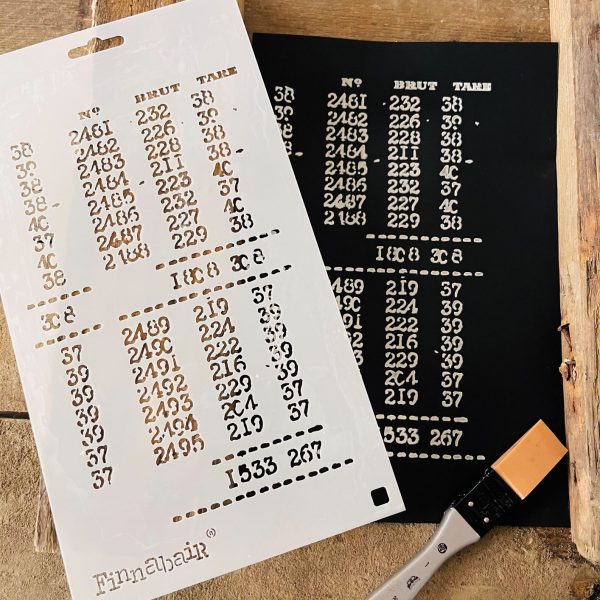 Nº BRUT TARE
38 2481 232 38
39 2482 226 39
38 2483 228 38
38- 2484 211 38-
40 2485 223 40
37 2486 232 37
40 2687 227 40
38 2188 229 38
308 1808 308
37 2489 219 37
39 2490 224 39
39 2491 222 39
39 2492 216 39
39 2493 229 39
37 2494 204 37
37 2495 219 37
1533 267
Finnabair®
Nº BRUT TARE
38 2481 232 38
2482 226 39
2483 228 38
2484 211 38-
2485 223 40
2486 232 37
2687 227 40
2188 229 38
1808 308
489 219 37
490 224 39
91 222 39
216 39
229 39
204 37
219 37
533 267